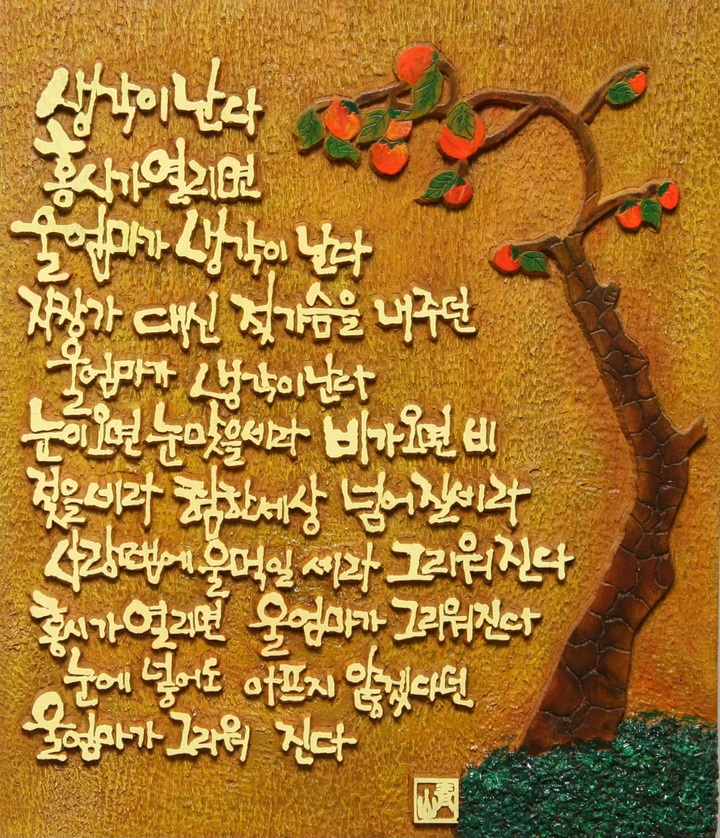 생각이 난다
홍시가 열리면
울엄마가 생각이 난다
자장가 대신 젖가슴을 내주던
울엄마가 생각이난다
눈이오면 눈맞을세라 비가오면 비
젖을세라 험한세상 넘어질세라
사랑땜에 울먹일 세라 그리워진다
홍시가 열리면 울엄마가 그리워진다
눈에 넣어도 아프지 않겠다던
울엄마가 그리워 진다